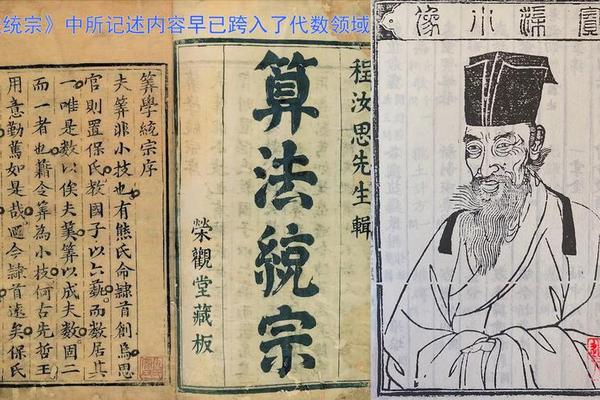 统宗》中所记述内容早已跨入了代数领域
筭學統宗序
夫筭非小技也有熊氏命隸首創爲
官則置保氏教國子以六藝而數居其
一唯是數以俟夫筭以成夫數固二
而一者也籍令筭為小技何古先哲王
用意勤篤如是哉今隸首遠矣保氏
程汝思先生輯
算法統宗
榮觀堂藏板
賓渠小像